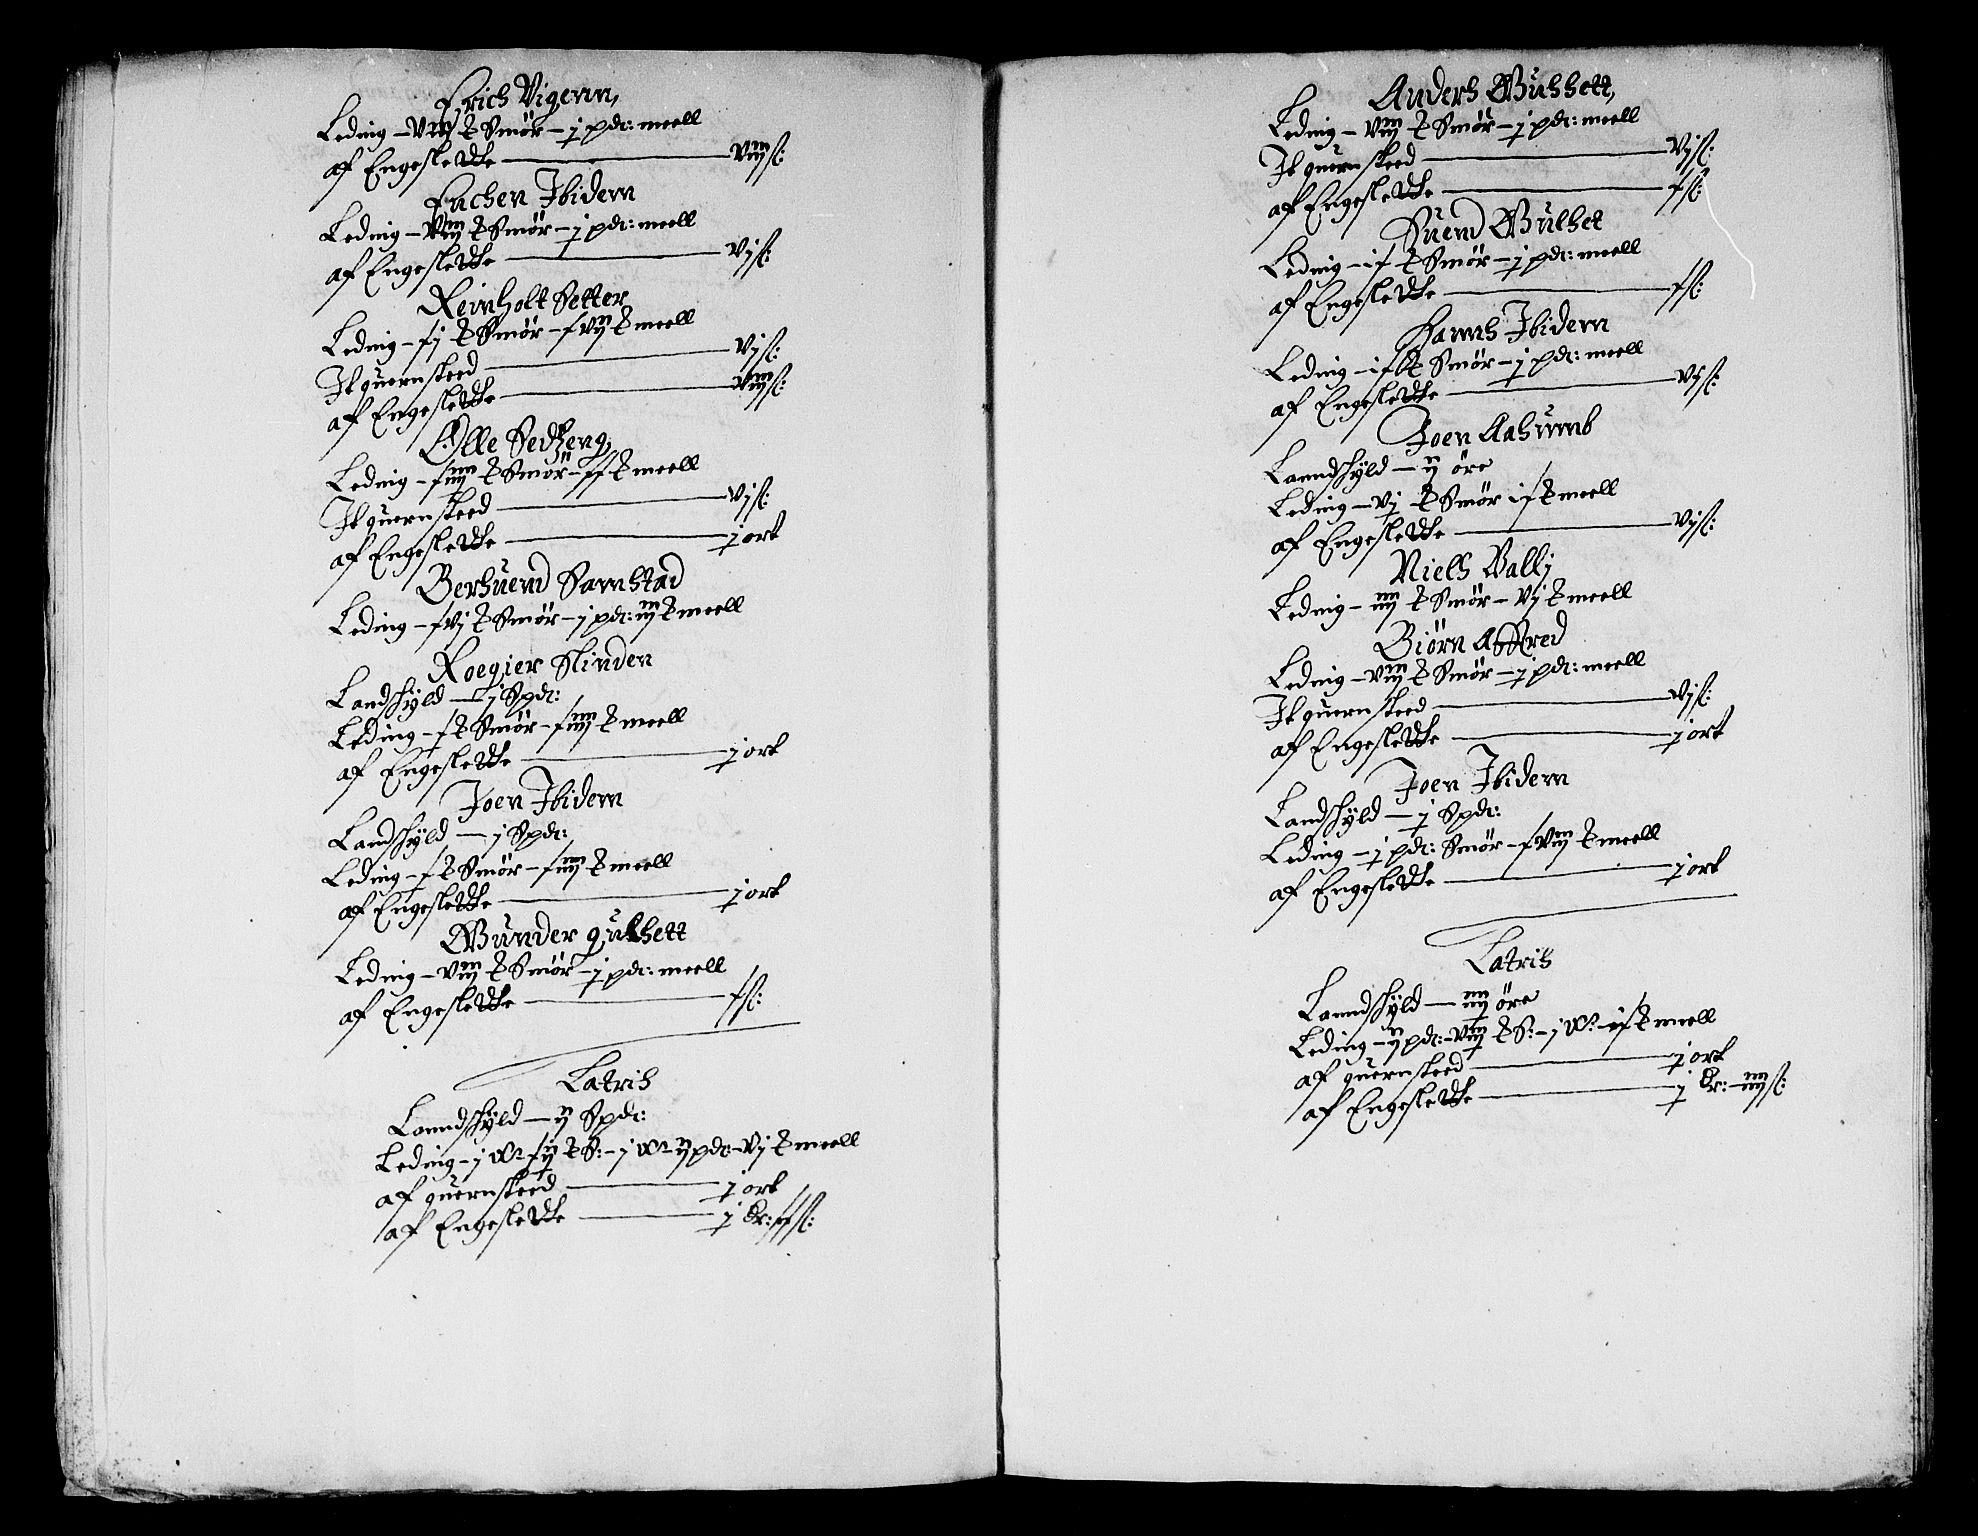 Erich Vigenn,
Leding – viij ℔ Smør – j pdt: meell
af Engeslette — viij sl:
Hachen Ibidem
Leding – viij ℔ Smør – j pdt: meell
af Engeslette — vj sl:
Reinholt Setter
Leding – xj ℔ Smør – xvij ℔ meell
It quernsteed — vj sl:
af Engeslette — viij sl:
Olle Sedzeng,
Leding – xiiij ℔ Smør – xx ℔ meell
It quernsteed — vj sl:
af Engeslette — j ort
Berhuend Samstad
Leding – xvj ℔ Smør – j pdt: iij ℔ meell
Roegier Slinden
Landschyld — j Spdt:
Leding – x ℔ Smør – xiiij ℔ meell
af Engeslette — j ort
Joen Ibidem
Landschyld — j Spdt:
Leding – x ℔ Smør – xiiij ℔ meell
af Engeslette — j ort
Gunder gulhett
Leding – viij ℔ Smør – j pdt: meell
af Engeslette — x sl:
Latris
Lanndschyld — ij Spdt:
Leding – j W: xij ℔ S: – j W: ij pdt – vj ℔ meell
af quernsteed — j ort
af Engeslette — j Dr: xx sl:
Anders Gulhett,
Leding – viij ℔ Smør – j pdt: meell
It quernsteed — vj sl:
af Engeslette — x sl:
Suend Gulhet
Leding – ix ℔ Smør – j pdt: meell
af Engeslette — x sl:
Hanns Ibidem
Leding – ix ℔ Smør – j pdt: meell
af Engeslette — vj sl:
Joen Aahumb
Lanndschyld — ij øre
Leding – vj ℔ Smør ix ℔ meell
af Engeslette — vj sl:
Niels Valli
Leding – iiij ℔ Smør – vj ℔ meell
Biørn Affred
Leding – viij ℔ Smør – j pdt: meell
It quernsteed — vj sl:
af Engeslette — j ort
Joen Ibidem
Landschyld — j Spdt:
Leding – j pdt: Smør – xviij ℔ meell
af Engeslette — j ort
Latris
Lanndschyld — iiij øre
Leding – ij pdt: – viij ℔ S: – j W: – ix ℔ meell
af quernsteed — j ort
af Engeslette — j Dr: – iiij sl: